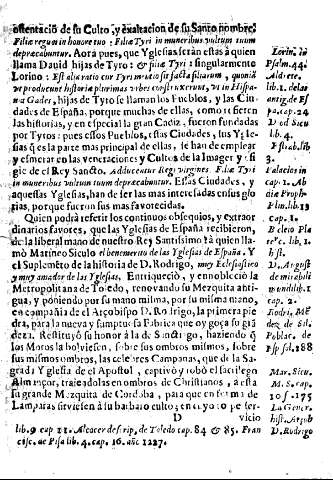 ostentació de su Culto, y exaltacion de su Santo nombre.
Filie regum in honore tuo: Filiæ Tyri in muneribus vultum tuum
depræcabuntur. Aora pues, que Yglesias serán estas à quien
llama David hijas de Tyro: & filiæ Tyri: singularmente
Lorino: Est alia ratio cur Tyri
ut produceunt historiæ plurimas urbes construxerunt, ut in Hispa-
nia Gades, hijas de Tyro se llaman los Pueblos, y las Ciu-
dades de España, porque muchas de ellas, como refieren
las historias, y en especial la gran Cadiz, fueron fundadas
por Tyros: pues essos Pueblos, estas Ciudades, sus Ygle-
sias q es la parte mas principal de ellas, se han de emplear
y esmerar en las veneraciones y Cultos de la Imagen y si
gie de el Rey Sancto. Adducentur Regi virgines. Filiæ Tyri
in muneribus vultum tuum depræcabuntur. Estas Ciudades, y
aquestas Yglesias, han de ser las mas interesadas en sus glo
rias, porque fueron sus mas favorecidas.
Quien podrà referir los continuos obsequios, y extraor
dinarios favores, que las Yglesias de España recibieron,
de la liberal mano de nuestro Rey Santissimo tà quien lla-
mò Marineo Siculo el benemerito de las Yglesias de España. Y
el Suplemēto de la historia de D. Rodrigo, muy Eclesiastico
y muy amador de las Yglesias. Enriqueciò, y ennobleciò la
Metropolitana de Toledo, renovando su Mezquita anti-
gua, y poniendo por su mano misma, por su misma mano,
en compañia de el Arçobispo D. Rodrigo, la primera pie
dra, para la nueva y sumptuosa Fabrica que oy goça su grā
deza. Restituyò su honor à la de Sanctiago, haziendo q
los Moros la bolviessen, sobre sus ombros mismos, sobre
sus mismos ombros, las celebres Campanas, que de la Sa-
grada Yglesia de el Apostol, captivò y robò el sacrilego
Almançor, trajendolas en ombros de Christianos, à esta
su grande Mezquita de Cordoba, para que en forma de
Lamparas sirviesen à su barbaro culto; en cuyo te per ser-
D vicio
lib. 9 cap 12. Alcocer descrip. de Toledo cap. 84 & 85. Fran
cisc. de Pisa lib. 4. cap. 16. año 1227.
Lorin. ic
Psalm. 44.
Aldrete.
lib. 1. de las
antig. de Es
pa. cap. 24
D od Sicu
lo lib.
lib. 4.
3.
Palacios in
cap. 1. Ab
dia Proph.
Plin. lib. 13
cap. 1.
B elcio Pla
lib. 2
hist.
D. August
de mirabili
mundi lib. 1.
cap. 2.
Rodri. Mē
dez de Sil.
Poblac. de
Esp. fol. 188
Mar. Sicu.
M. S. cap.
10 f. 175
La Gener.
hist. Struct
D. Rodrigo